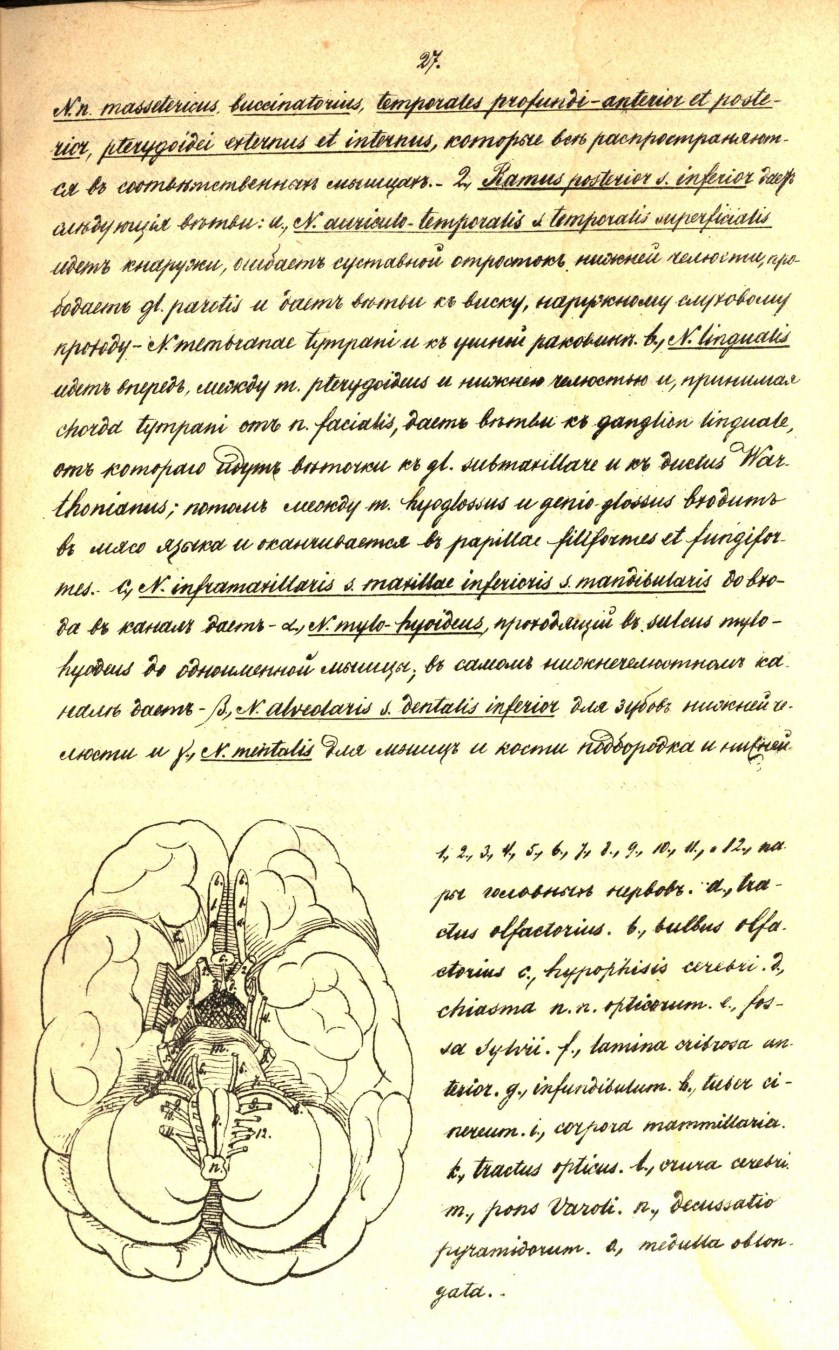 27.
N.n. massetericus, buccinatorius, temporales profundi-anterior et poste-
rior, pterygoidei externus et internus, которые всѣ распространяют-
ся въ соотвѣтственныхъ мышцахъ.- 2, Ramus posterior s. inferior даетъ
слѣдующія вѣтви: a, N. auriculo-temporalis s. temporalis superficialis
идетъ кнаружи, огибаетъ суставной отростокъ нижней челюсти, про-
бодаетъ gl. parotis и даетъ вѣтви къ виску, наружному слуховому
проходу- N. membranae tympani и къ ушной раковинѣ. b, N. lingualis
идетъ впередъ, между m. pterygoideus и нижнею челюстью и, принимая
chorda tympani отъ n. facialis, даетъ вѣтви къ ganglion linguale,
отъ котораго идутъ вѣточки къ gl. submaxillare и къ ductus War-
thonianus; потомъ между m. hyoglossus и genio-glossus входитъ
въ мясо языка и оканчивается въ papillae filiformes et fungifor-
mes.- c, N. inframaxillaris s. maxillae inferioris s. mandibularis до вхо-
да въ каналъ даетъ- α, N. mylo-hyoideus, проходящій въ sulcus mylo-
hyodeus до одноименной мышцы; въ самомъ нижнечелюстномъ ка-
налѣ даетъ- β, N. alveolaris s. dentalis inferior для зубовъ нижней че-
люсти и γ, N. mentalis для мышцъ и кости подбородка и нижней
1, 2, 3, 4, 5, 6, 7, 8, 9, 10, 11, и 12, па-
ры головныхъ нервовъ. a, tra-
ctus olfactorius. b, bulbus olfa-
ctorius c, hypophisis cerebri. d,
chiasma n.n. opticorum. e, fos-
sa Sylvii. f, lamina cribrosa an-
terior. g, infundibulum. h, tuber ci-
nereum. i, corpora mammillaria.
k, tractus opticus. l, crura cerebri.
m, pons Varoli. n, decussatio
pyramidorum. o, medulla oblon-
gata.-